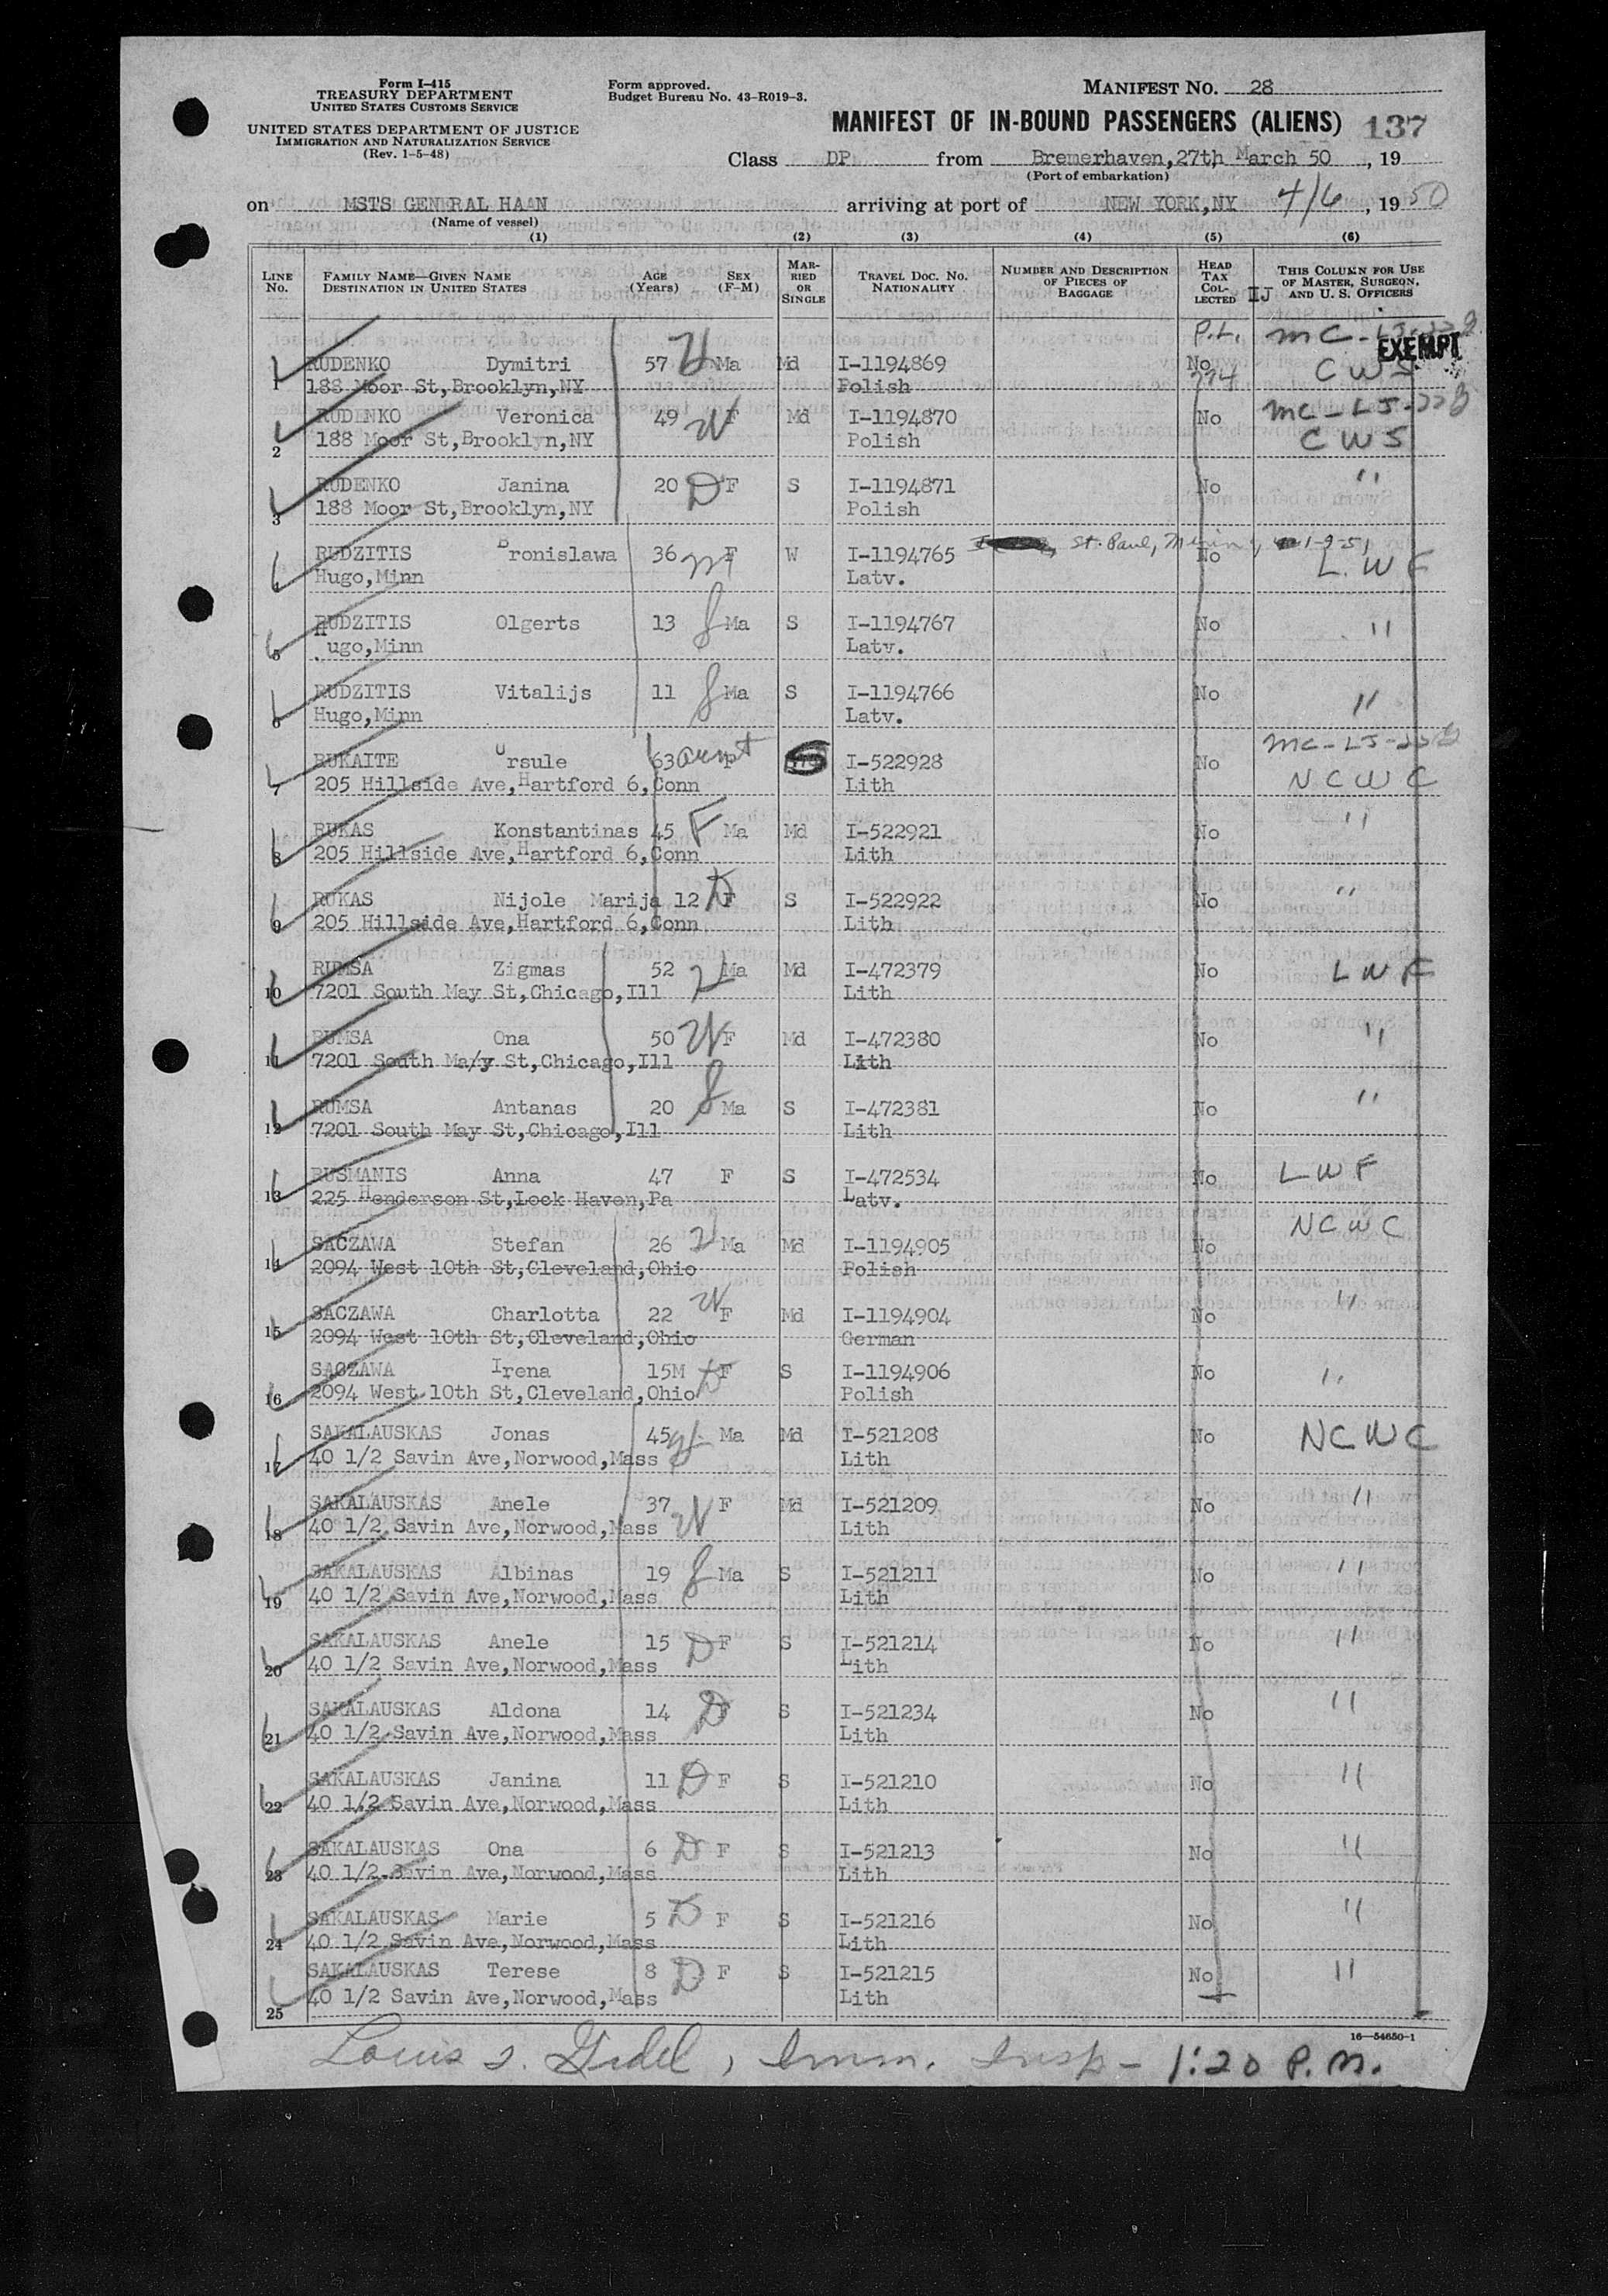 Form I-415
TREASURY DEPARTMENT
UNITED STATES CUSTOMS SERVICE
UNITED STATES DEPARTMENT OF JUSTICE
IMMIGRATION AND NATURALIZATION SERVICE
(Rev. 1-5-48)
Form approved.
Budget Bureau No. 43-R019-3.
MANIFEST NO. 28
MANIFEST OF IN-BOUND PASSENGERS (ALIENS) 137
Class DP from Bremerhaven,27th March 50, 19
(Port of embarkation)
on MSTS GENERAL HAAN arriving at port of NEW YORK,NY 4/6, 1950
(Name of vessel)
(1) (2) (3) (4) (5) (6)
LINE No. FAMILY NAME—GIVEN NAME DESTINATION IN UNITED STATES AGE (Years) SEX (F-M) MARRIED OR SINGLE TRAVEL DOC. NO. NATIONALITY NUMBER AND DESCRIPTION OF PIECES OF BAGGAGE HEAD TAX COLLECTED THIS COLUMN FOR USE OF MASTER, SURGEON, AND U. S. OFFICERS
P.L. MC-LJ-22 EXEMPT
1 RUDENKO Dymitri 57 H Ma Md I-1194869 No CWS
188 Moor St,Brooklyn,NY Polish 774
2 RUDENKO Veronica 49 W F Md I-1194870 No MC-LJ-22
188 Moor St,Brooklyn,NY Polish CWS
3 RUDENKO Janina 20 D F S I-1194871 No "
188 Moor St,Brooklyn,NY Polish
St. Paul, Minn, 1-9-51
4 RUDZITIS Bronislawa 36 m F W I-1194765 No L.W F
Hugo,Minn Latv.
5 RUDZITIS Olgerts 13 S Ma S I-1194767 No "
Hugo,Minn Latv.
6 RUDZITIS Vitalijs 11 S Ma S I-1194766 No "
Hugo,Minn Latv.
7 RUKAITE Ursule 63 aunt F I-522928 No MC-LJ-22
205 Hillside Ave,Hartford 6,Conn Lith NCWC
8 RUKAS Konstantinas 45 F Ma Md I-522921 No "
205 Hillside Ave,Hartford 6,Conn Lith
9 RUKAS Nijole Marija 12 D F S I-522922 No "
205 Hillside Ave,Hartford 6,Conn Lith
10 RUMSA Zigmas 52 H Ma Md I-472379 No LWF
7201 South May St,Chicago,Ill Lith
11 RUMSA Ona 50 W F Md I-472380 No "
7201 South Ma/y St,Chicago,Ill Lith
12 RUMSA Antanas 20 S Ma S I-472381 No "
7201 South May St,Chicago,Ill Lith
13 RUSMANIS Anna 47 F S I-472534 No LWF
225 Henderson St,Lock Haven,Pa Latv.
14 SACZAWA Stefan 26 H Ma Md I-1194905 No NCWC
2094 West 10th St,Cleveland,Ohio Polish
15 SACZAWA Charlotta 22 W F Md I-1194904 No "
2094 West 10th St,Cleveland,Ohio German
16 SACZAWA Irena 15M D F S I-1194906 No "
2094 West 10th St,Cleveland,Ohio Polish
17 SAKALAUSKAS Jonas 45 H Ma Md I-521208 No NCWC
40 1/2 Savin Ave,Norwood,Mass Lith
18 SAKALAUSKAS Anele 37 W F Md I-521209 No "
40 1/2 Savin Ave,Norwood,Mass Lith
19 SAKALAUSKAS Albinas 19 S Ma S I-521211 No "
40 1/2 Savin Ave,Norwood,Mass Lith
20 SAKALAUSKAS Anele 15 D F S I-521214 No "
40 1/2 Savin Ave,Norwood,Mass Lith
21 SAKALAUSKAS Aldona 14 D F S I-521234 No "
40 1/2 Savin Ave,Norwood,Mass Lith
22 SAKALAUSKAS Janina 11 D F S I-521210 No "
40 1/2 Savin Ave,Norwood,Mass Lith
23 SAKALAUSKAS Ona 6 D F S I-521213 No "
40 1/2 Savin Ave,Norwood,Mass Lith
24 SAKALAUSKAS Marie 5 D F S I-521216 No "
40 1/2 Savin Ave,Norwood,Mass Lith
25 SAKALAUSKAS Terese 8 D F S I-521215 No "
40 1/2 Savin Ave,Norwood,Mass Lith
16—54650-1
Louis J. , Imm. Insp - 1:20 P.M.